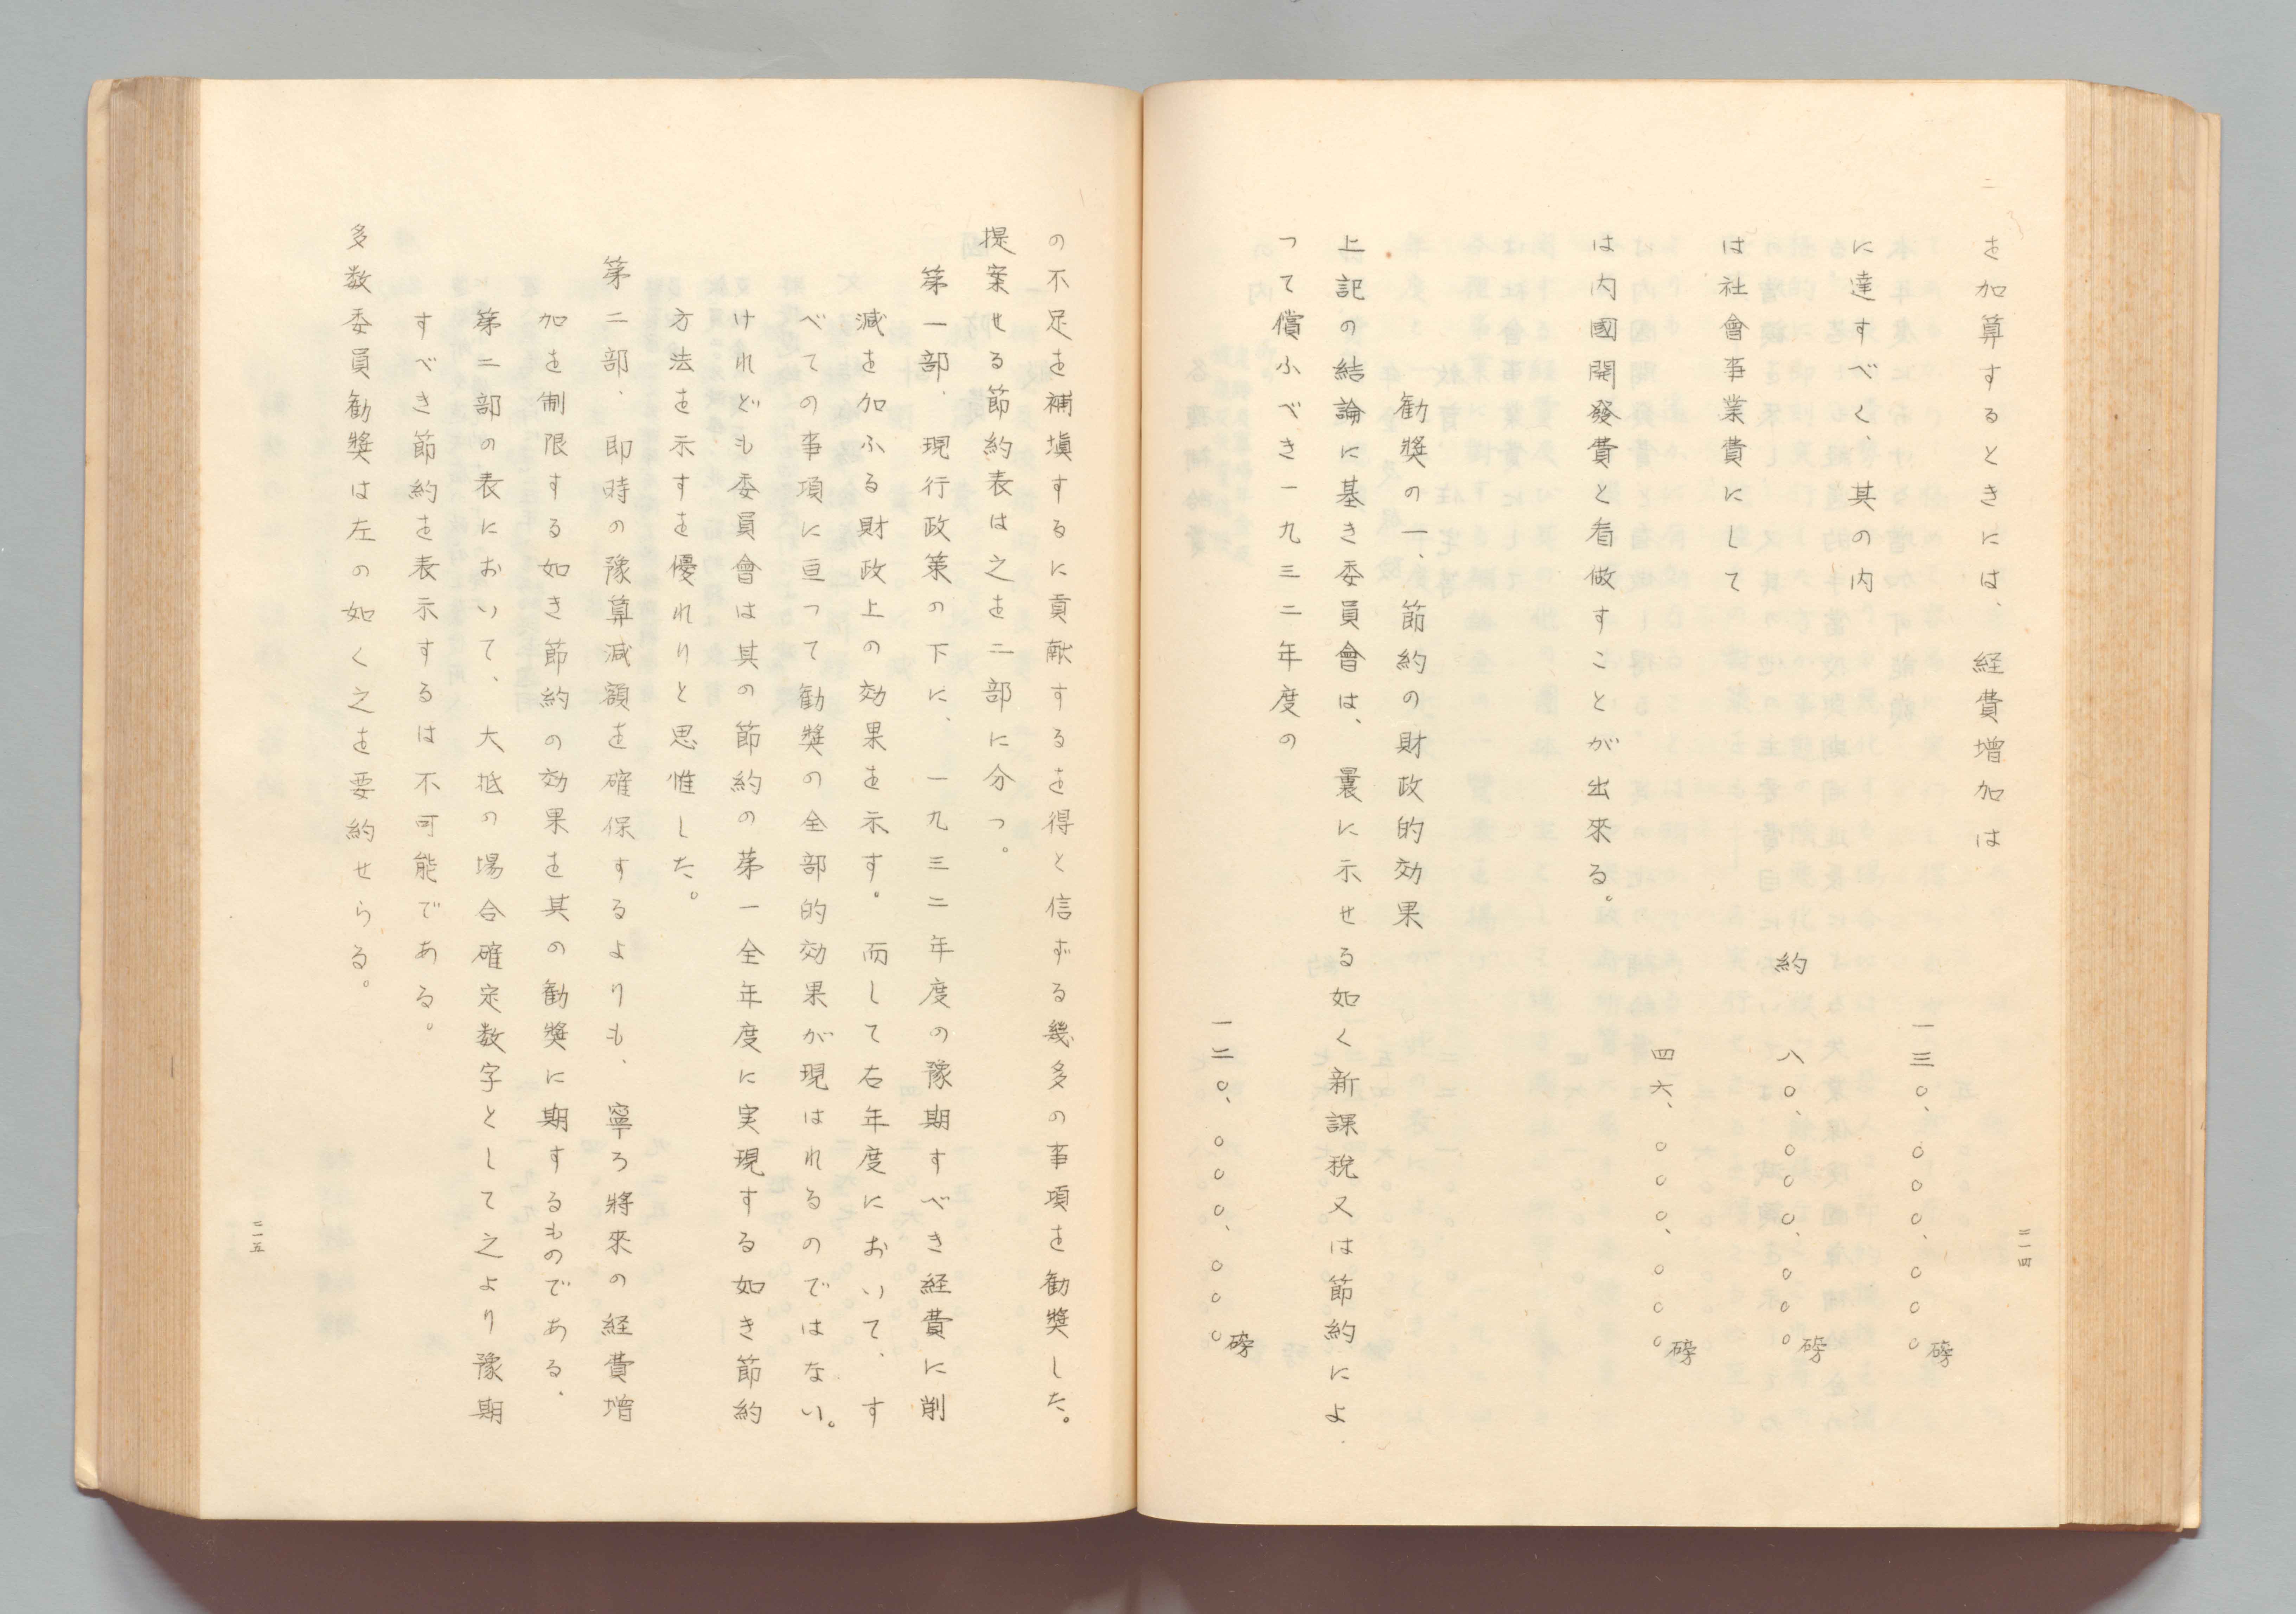 を加算するときには、経費増加は
一三〇、〇〇〇、〇〇〇磅
に達すべく、其の内
約 八〇、〇〇〇、〇〇〇磅
は社會事業費にして
四六、〇〇〇、〇〇〇磅
は内國開發費と看做すことが出來る。
勧奬の一、節約の財政的効果
上記の結論に基き委員會は、曩に示せる如く新課税又は節約によ
つて償ふべき一九三二年度の
一二〇、〇〇〇、〇〇〇磅
二一四
の不足を補塡するに貢献するを得と信ずる幾多の事項を勧奬した。
提案せる節約表は之を二部に分つ。
第一部、現行政策の下に、一九三二年度の豫期すべき経費に削
減を加ふる財政上の効果を示す。而して右年度において、す
べての事項に亘つて勧奬の全部的効果が現はれるのではない。
けれども委員會は其の節約の第一全年度に実現する如き節約
方法を示すを優れりと思惟した。
第二部、即時の豫算減額を確保するよりも、寧ろ將來の経費増
加を制限する如き節約の効果を其の勧奬に期するものである、
第二部の表において、大抵の場合確定数字として之より豫期
すべき節約を表示するは不可能である。
多数委員勧奬は左の如く之を要約せらる。
二一五